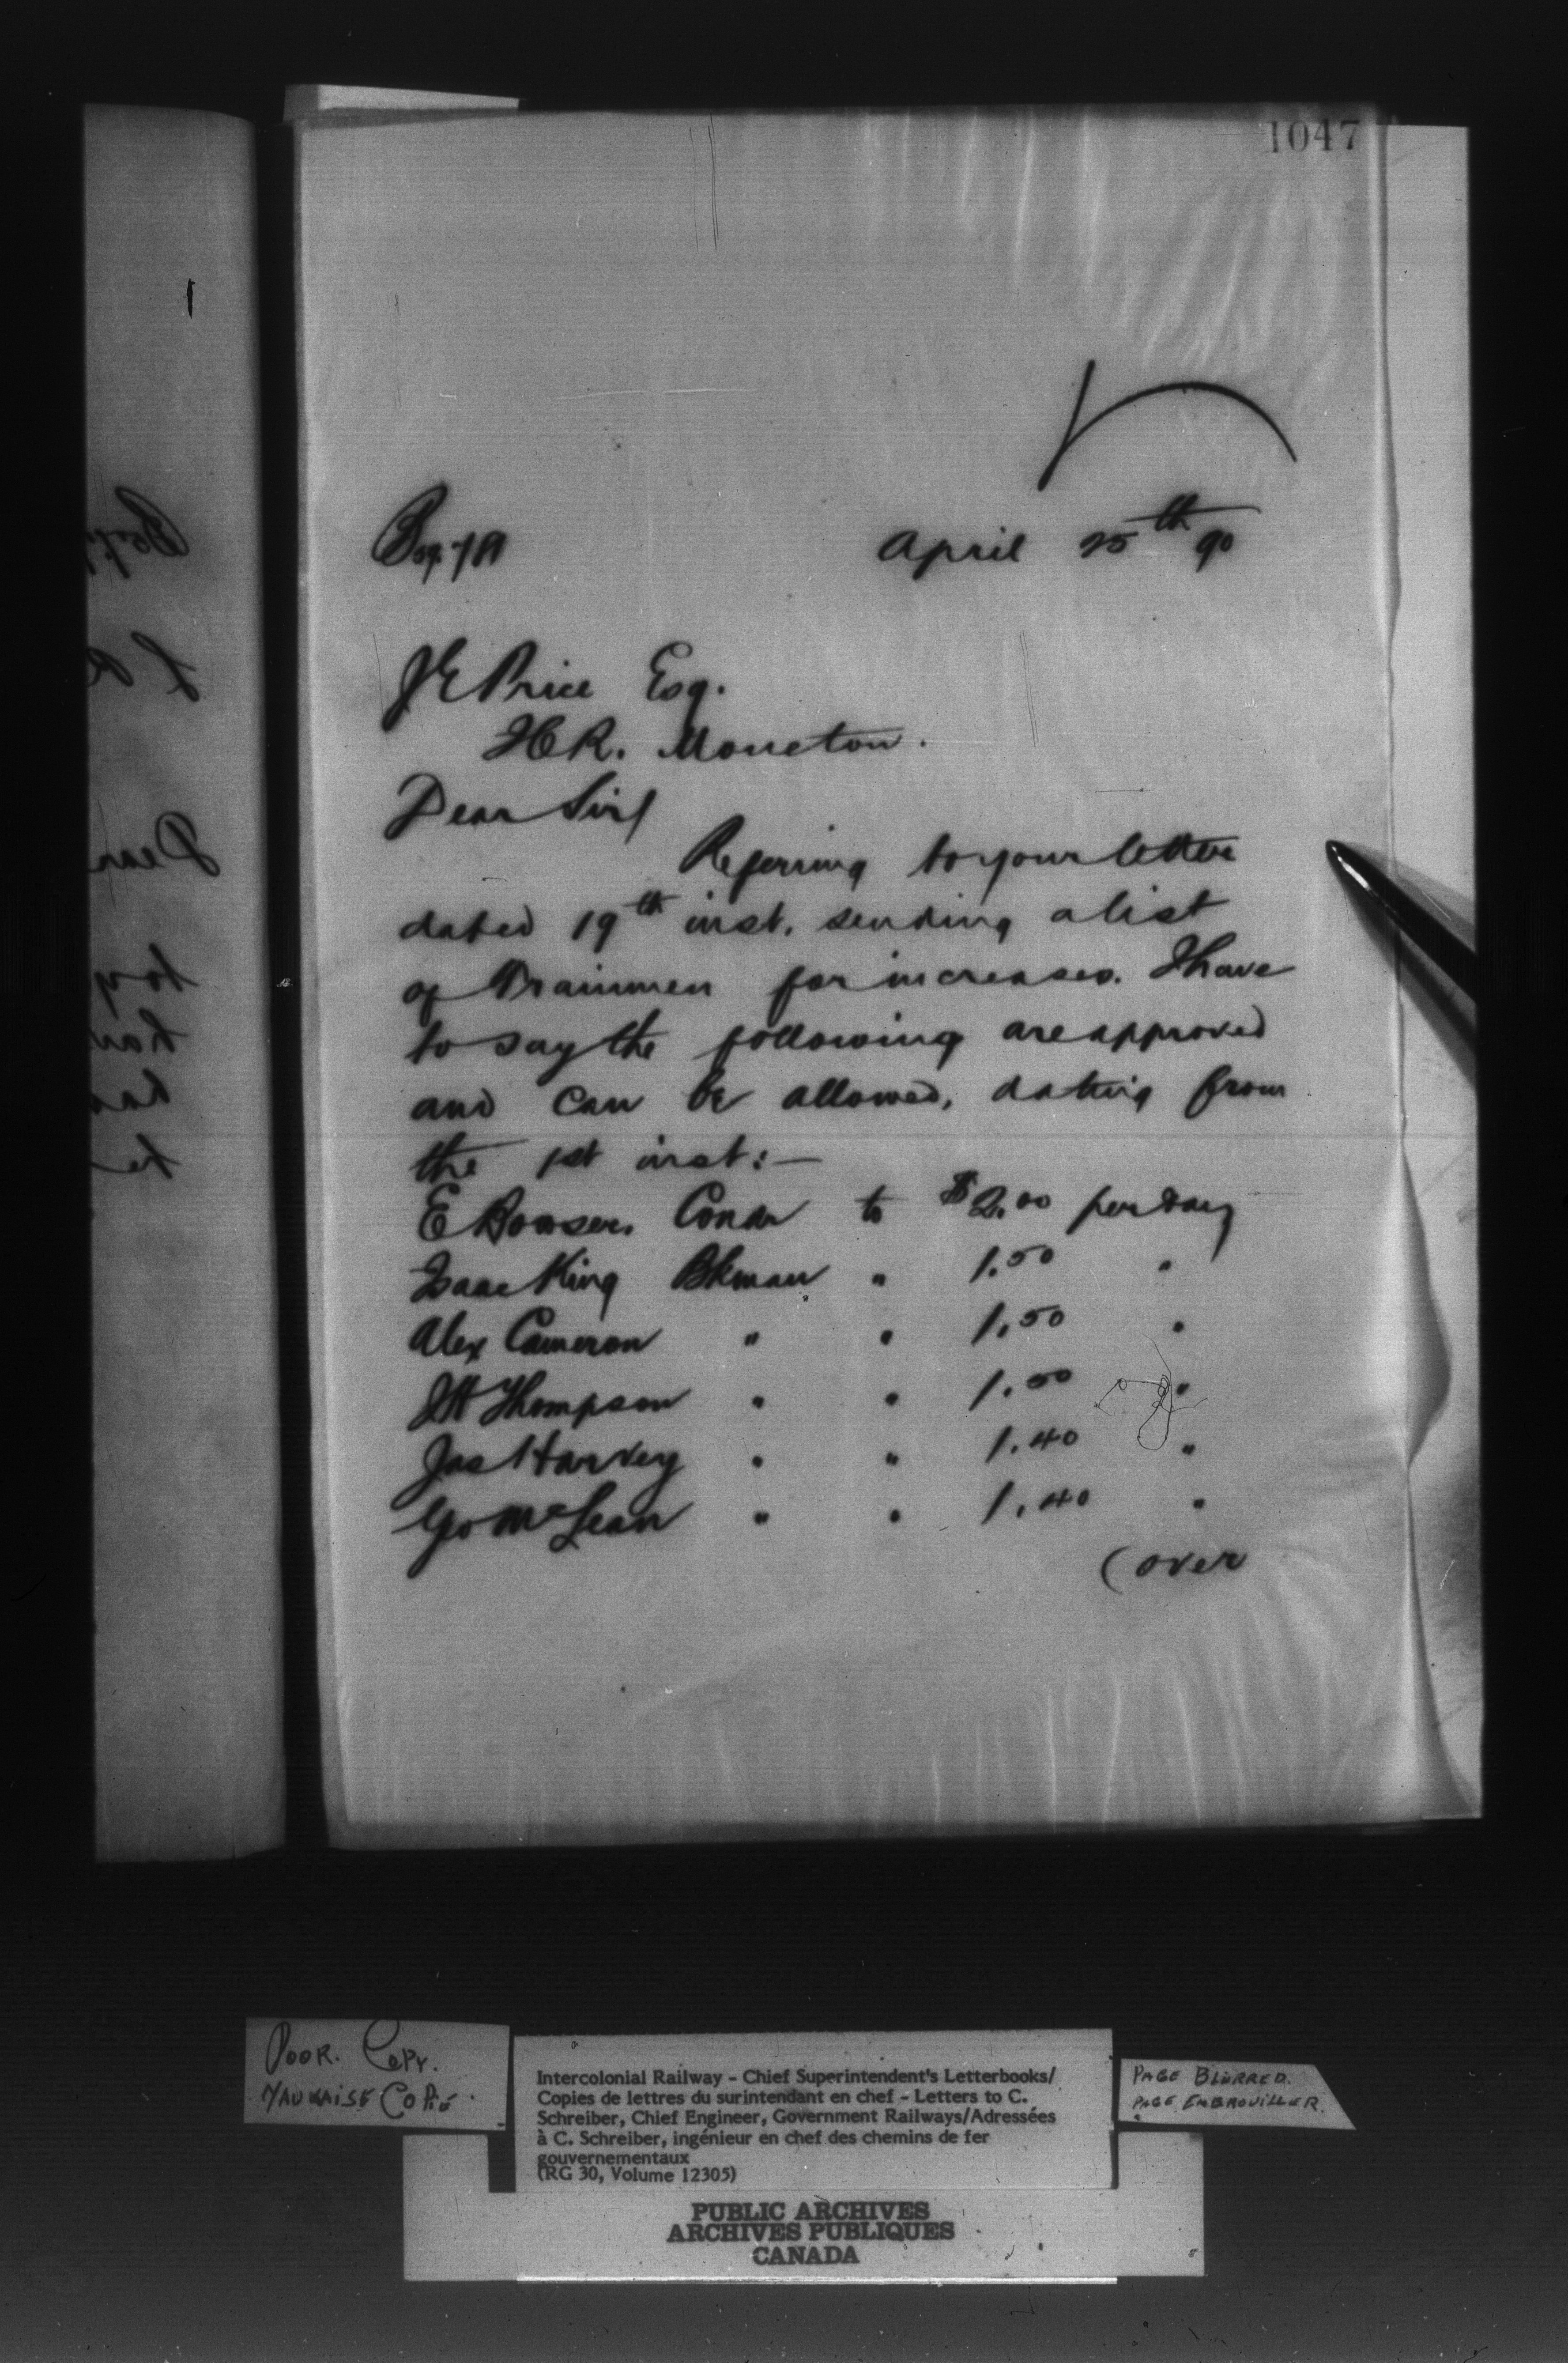 1047
April 25th 90
J E Price Esq.
I C R. Moncton.
Dear Sir/
Referring to your letter
dated 19th inst. sending a list
of Trainmen for increases. I have
to say the following are approved
and can be allowed, dating from
the 1st inst:—
E Bowser. Condr to $2.00 per day
Isaac King Bkman " 1.50 "
Alex Cameron " " 1.50 "
J H Thompson " " 1.50 "
Jas Harvey " " 1.40 "
Geo McLean " " 1.40 "
(over
POOR. COPY.
MAUVAISE COPIE.
Intercolonial Railway – Chief Superintendent's Letterbooks/
Copies de lettres du surintendant en chef – Letters to C.
Schreiber, Chief Engineer, Government Railways/Adressées
à C. Schreiber, ingénieur en chef des chemins de fer
gouvernementaux
(RG 30, Volume 12305)
PAGE BLURRED.
PAGE EMBROUILLER.
PUBLIC ARCHIVES
ARCHIVES PUBLIQUES
CANADA